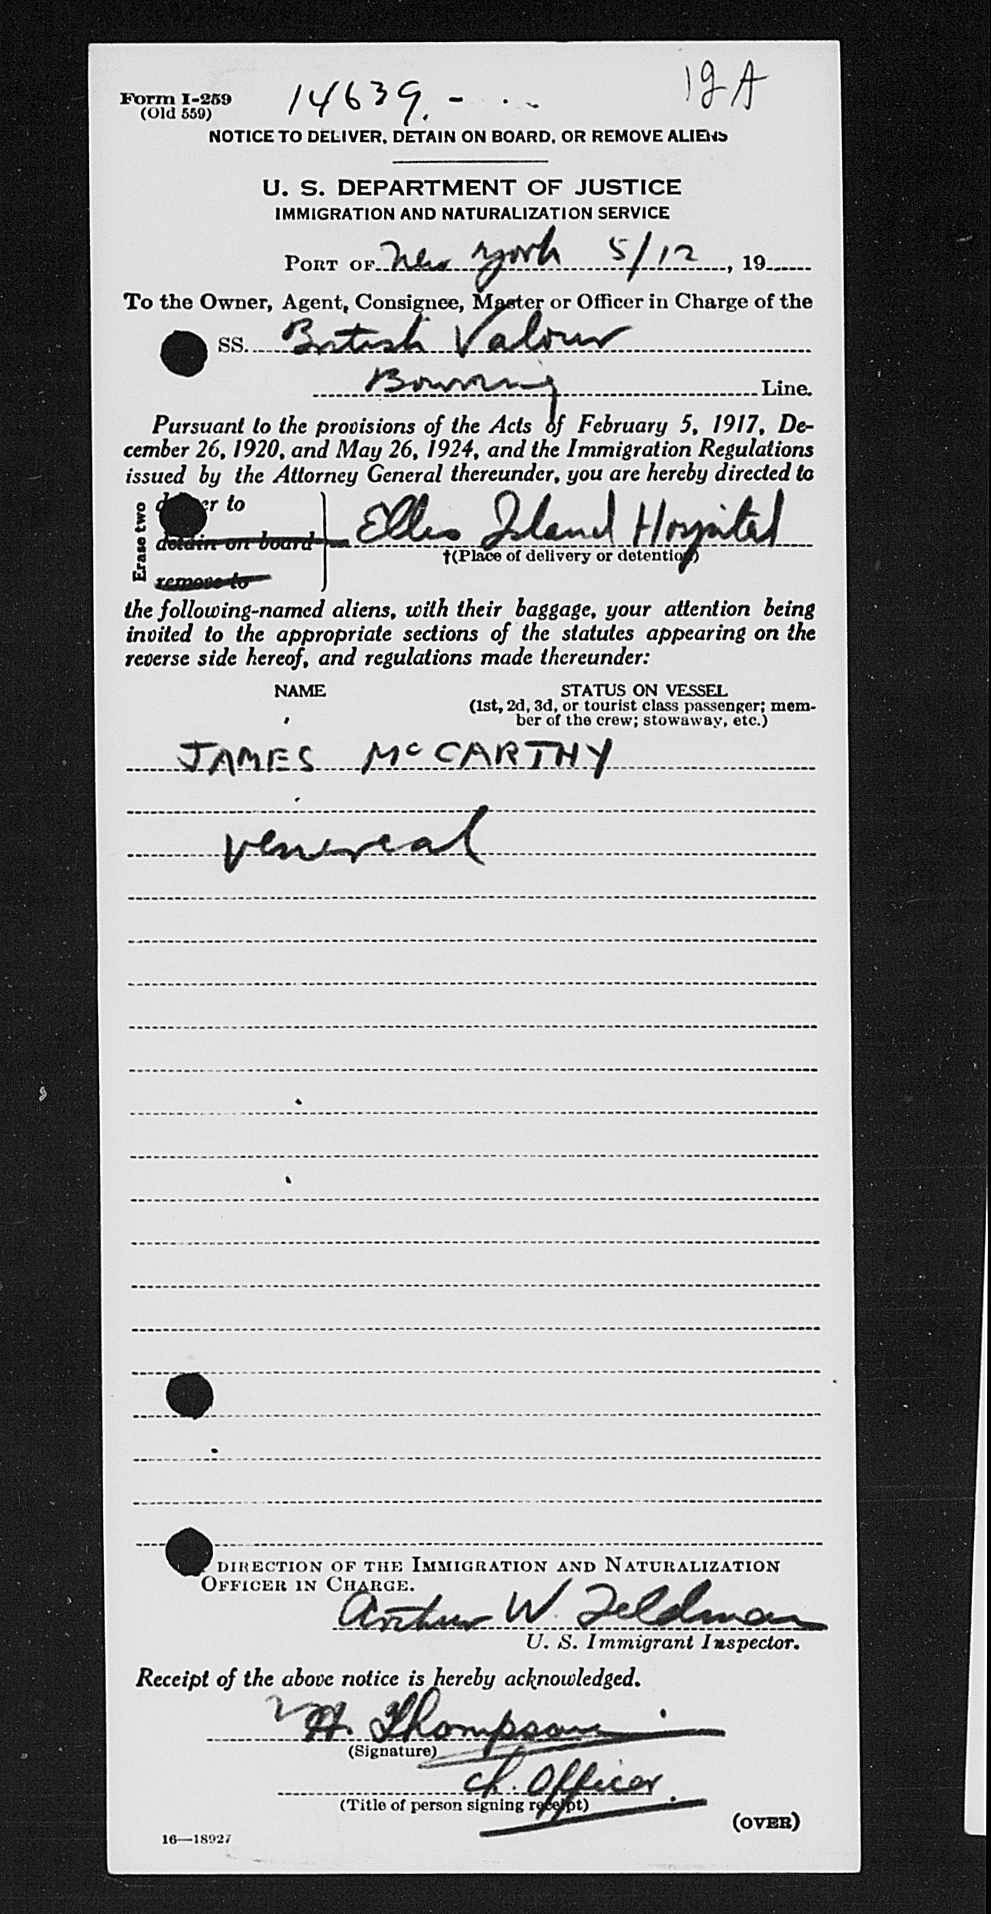 Form I-259
(Old 559)
14639. -
19A
NOTICE TO DELIVER, DETAIN ON BOARD, OR REMOVE ALIENS
U. S. DEPARTMENT OF JUSTICE
IMMIGRATION AND NATURALIZATION SERVICE
PORT OF New York 5/12, 19
To the Owner, Agent, Consignee, Master or Officer in Charge of the
SS. British Valour
Bowring Line.
Pursuant to the provisions of the Acts of February 5, 1917, De-
cember 26, 1920, and May 26, 1924, and the Immigration Regulations
issued by the Attorney General thereunder, you are hereby directed to
Erase two
to
detain on board
remove to
Ellis Island Hospital
†(Place of delivery or detention)
the following-named aliens, with their baggage, your attention being
invited to the appropriate sections of the statutes appearing on the
reverse side hereof, and regulations made thereunder:
NAME
STATUS ON VESSEL
(1st, 2d, 3d, or tourist class passenger; mem-
ber of the crew; stowaway, etc.)
JAMES McCARTHY
venereal
DIRECTION OF THE IMMIGRATION AND NATURALIZATION
OFFICER IN CHARGE.
Arthur W. Feldman
U. S. Immigrant Inspector.
Receipt of the above notice is hereby acknowledged.
H. Thompson
(Signature)
Ch. Officer.
(Title of person signing receipt)
(OVER)
16—18927